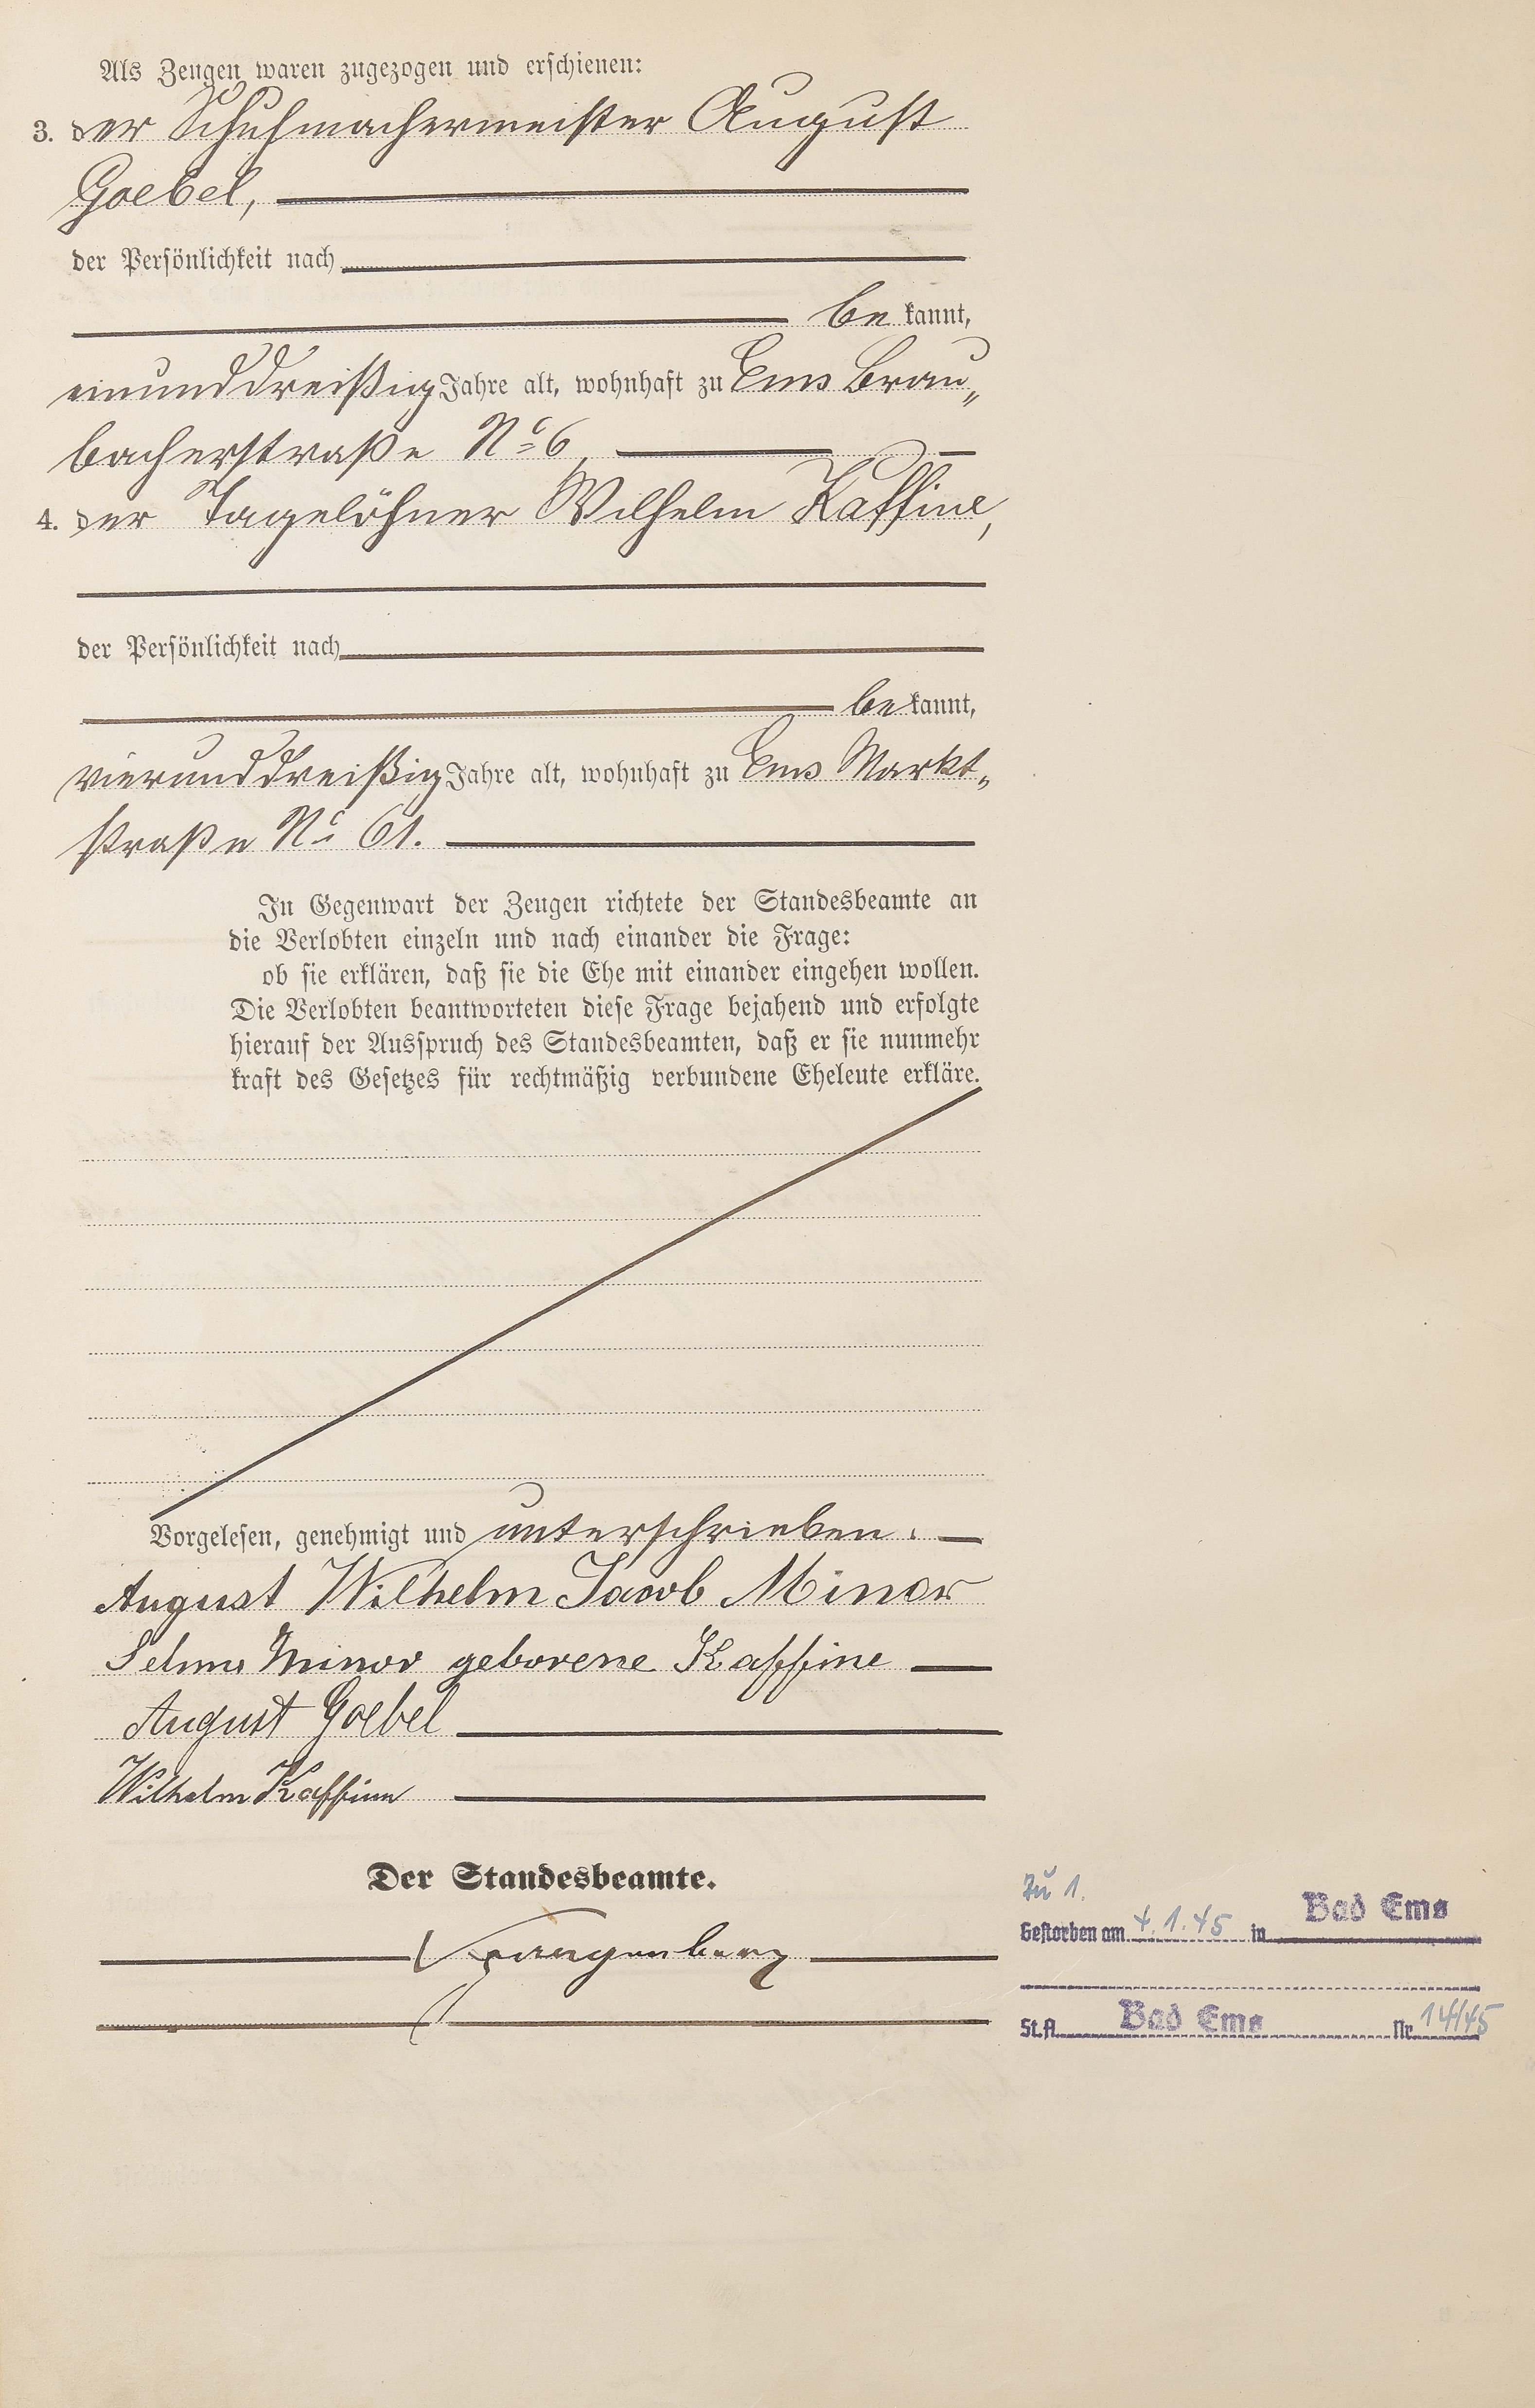 Als Zeugen waren zugezogen und erschienen:
3. der Schuhmachermeister August
Goebel,
der Persönlichkeit nach
be kannt,
einunddreißig Jahre alt, wohnhaft zu Ems Brau„
bacherstraße No 6,
4. der Tagelöhner Wilhelm Kaffine,
der Persönlichkeit nach
be kannt,
vierunddreißig Jahre alt, wohnhaft zu Ems Markt„
straße No 61.
In Gegenwart der Zeugen richtete der Standesbeamte an
die Verlobten einzeln und nach einander die Frage:
ob sie erklären, daß sie die Ehe mit einander eingehen wollen.
Die Verlobten beantworteten diese Frage bejahend und erfolgte
hierauf der Ausspruch des Standesbeamten, daß er sie nunmehr
kraft des Gesetzes für rechtmäßig verbundene Eheleute erkläre.
Vorgelesen, genehmigt und unterschrieben.
August Wilhelm Jacob Minor
Selma Minor geborene Kaffine
August Goebel
Wilhelm Kaffine
Der Standesbeamte.
Zu 1.
Gestorben am 4.1.45 in Bad Ems
St.A. Bad Ems Nr. 14/45